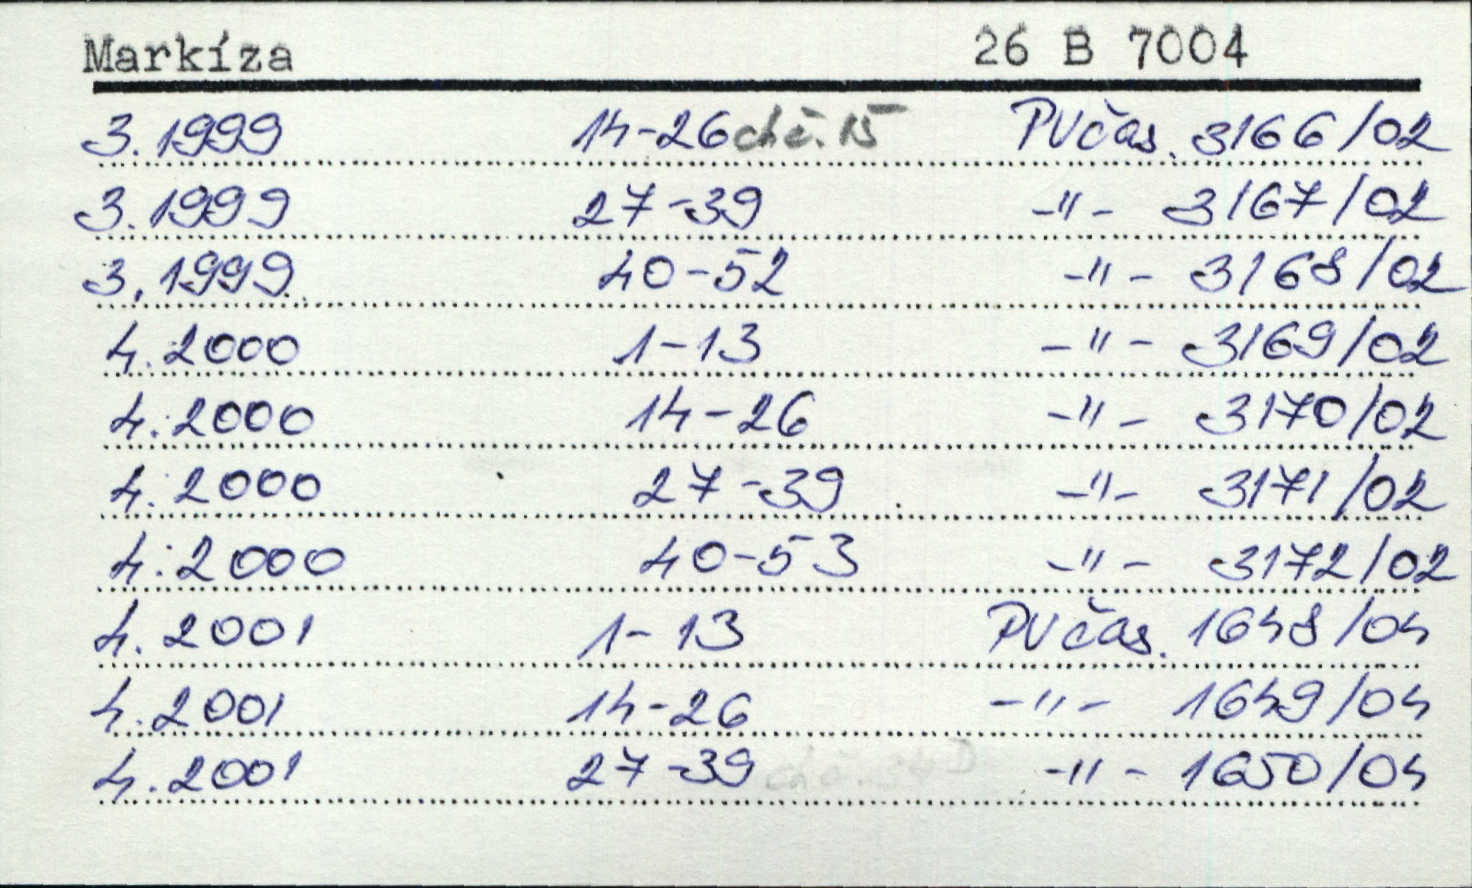 Markíza 26 B 7004
3.1999 14-26 chč. 15 PVčas. 3166/02
3.1999 27-39 -"- 3167/02
3.1999 40-52 -"- 3168/02
4.2000 1-13 -"- 3169/02
4.2000 14-26 -"- 3170/02
4.2000 27-39 -"- 3171/02
4.2000 40-53 -"- 3172/02
4.2001 1-13 PVčas. 1648/04
4.2001 14-26 -"- 1649/04
4.2001 27-39 -"- 1650/04